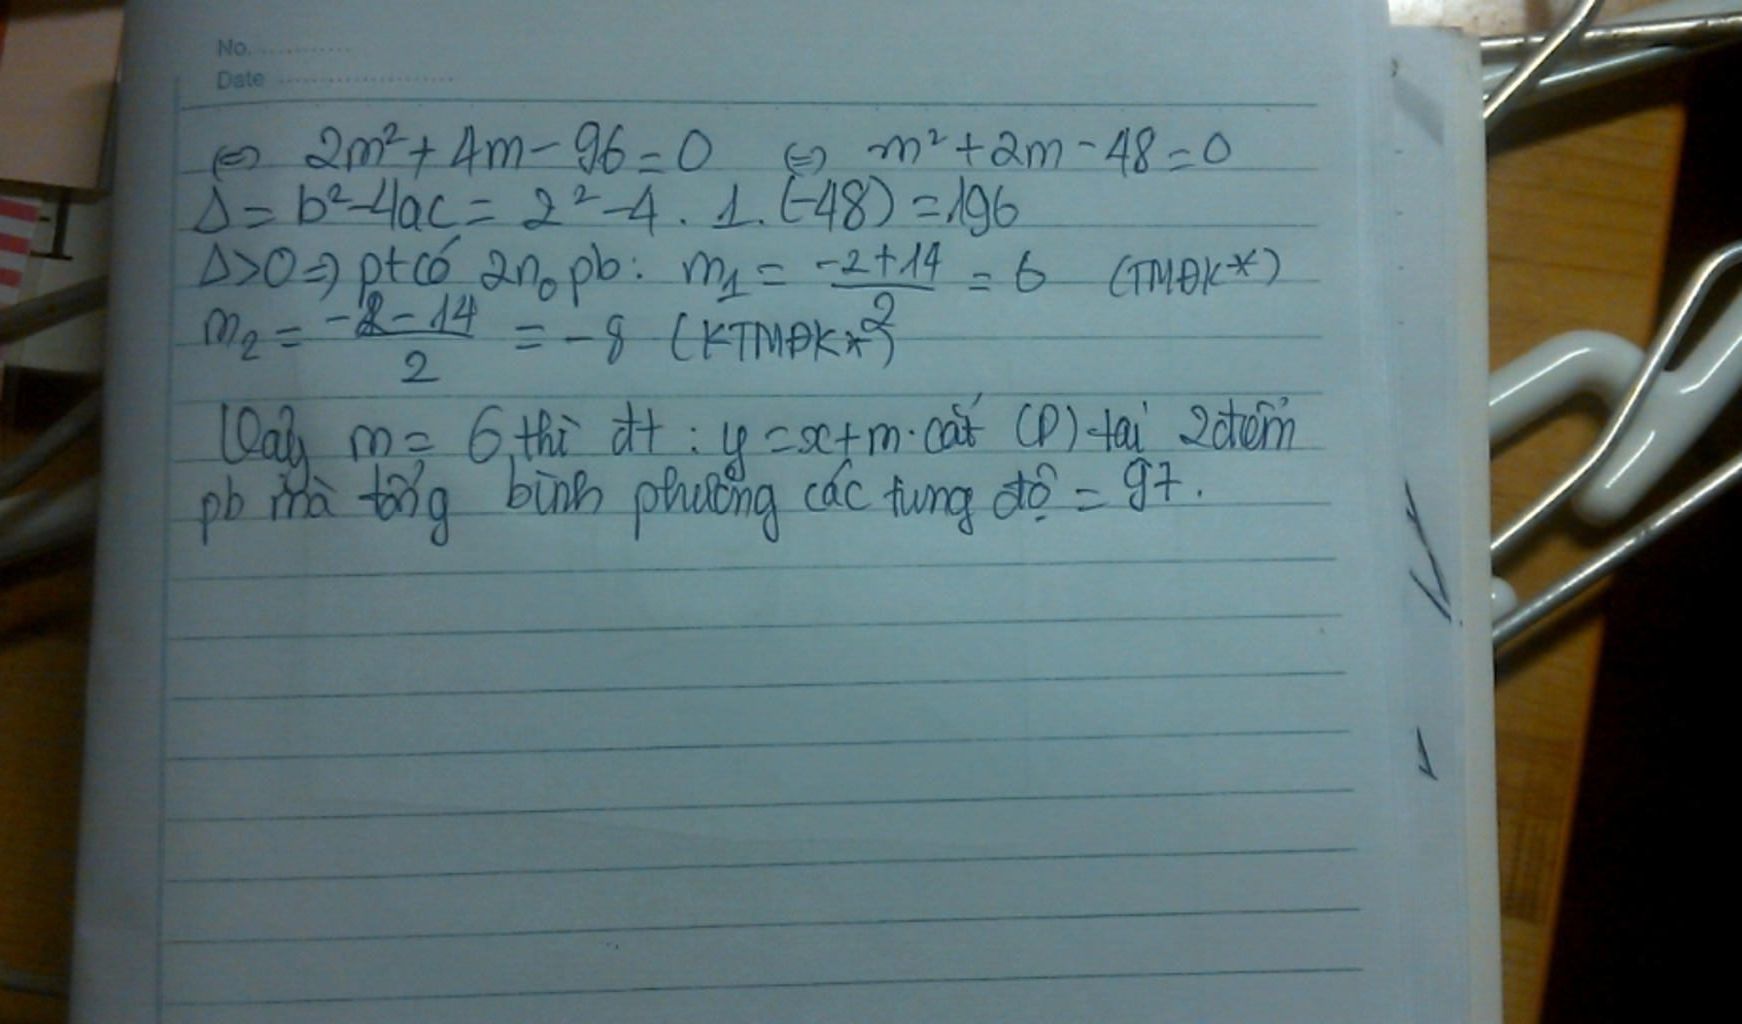 No. ..................
Date ..........................
⇔ 2m² + 4m - 96 = 0 ⇔ m² + 2m - 48 = 0
Δ = b² - 4ac = 2² - 4 . 1. (-48) = 196
Δ > 0 ⇒ pt có 2n₀ pb: m₁ = (-2 + 14)/2 = 6 (TMĐK*)
m₂ = (-2 - 14)/2 = -8 (KTMĐK*)
Vậy m = 6 thì đt : y = x + m cắt (P) tại 2 điểm
pb mà tổng bình phương các tung độ = 97.